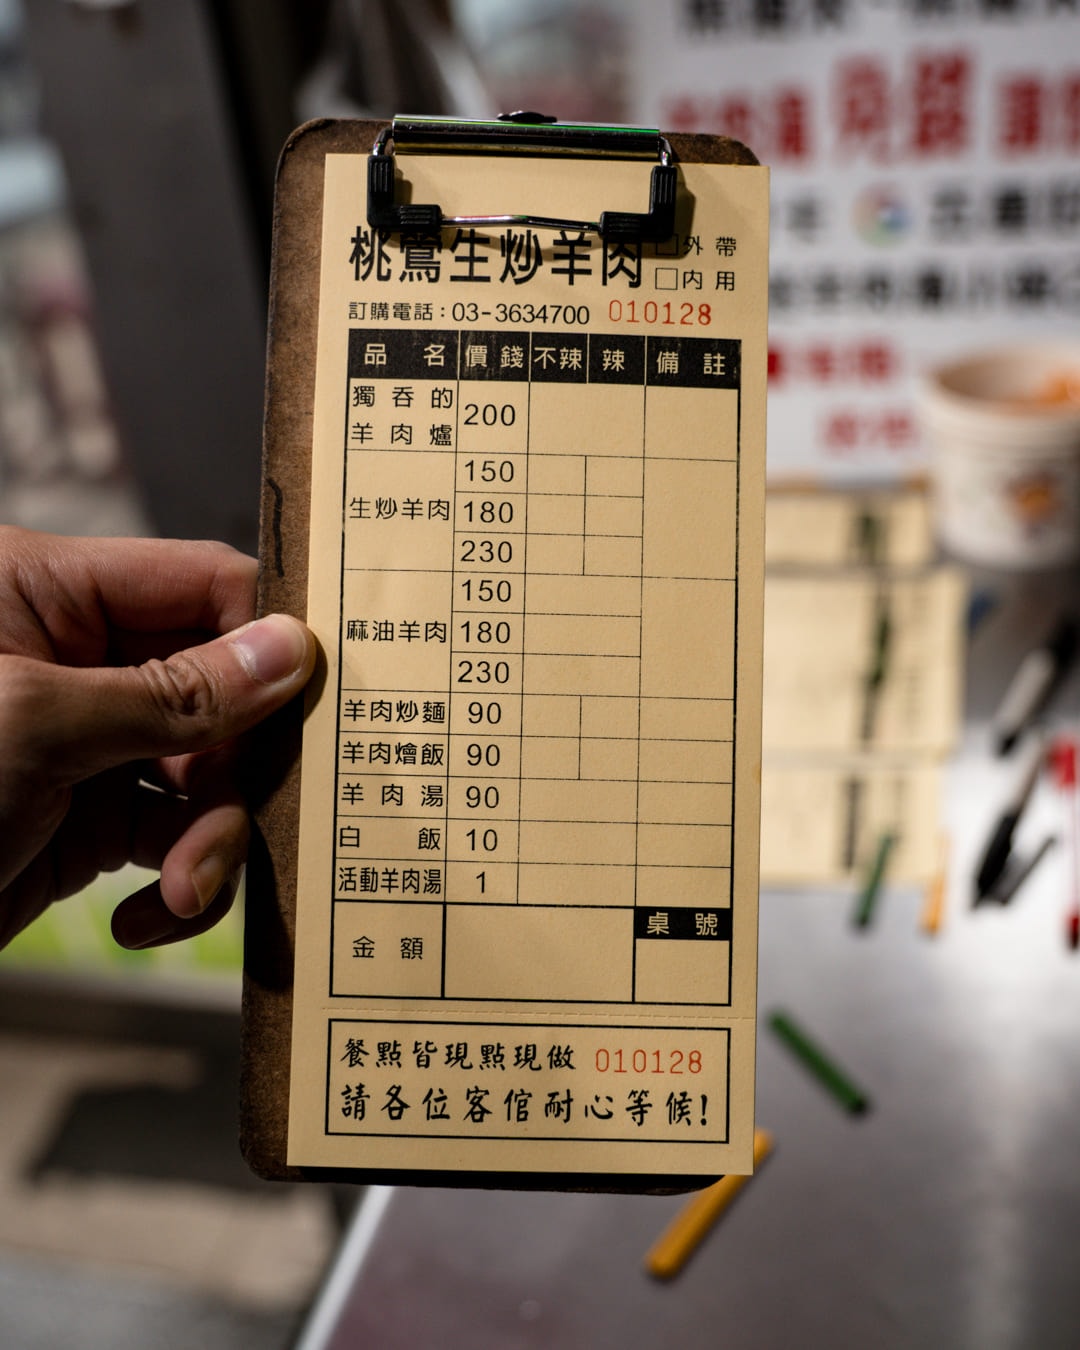 桃鶯生炒羊肉 □外帶
□內用
訂購電話：03-3634700 010128
品名 價錢 不辣 辣 備註
獨吞的羊肉爐 200
生炒羊肉 150
180
230
麻油羊肉 150
180
230
羊肉炒麵 90
羊肉燴飯 90
羊肉湯 90
白飯 10
活動羊肉湯 1
金額 桌號
餐點皆現點現做 010128
請各位客倌耐心等候!